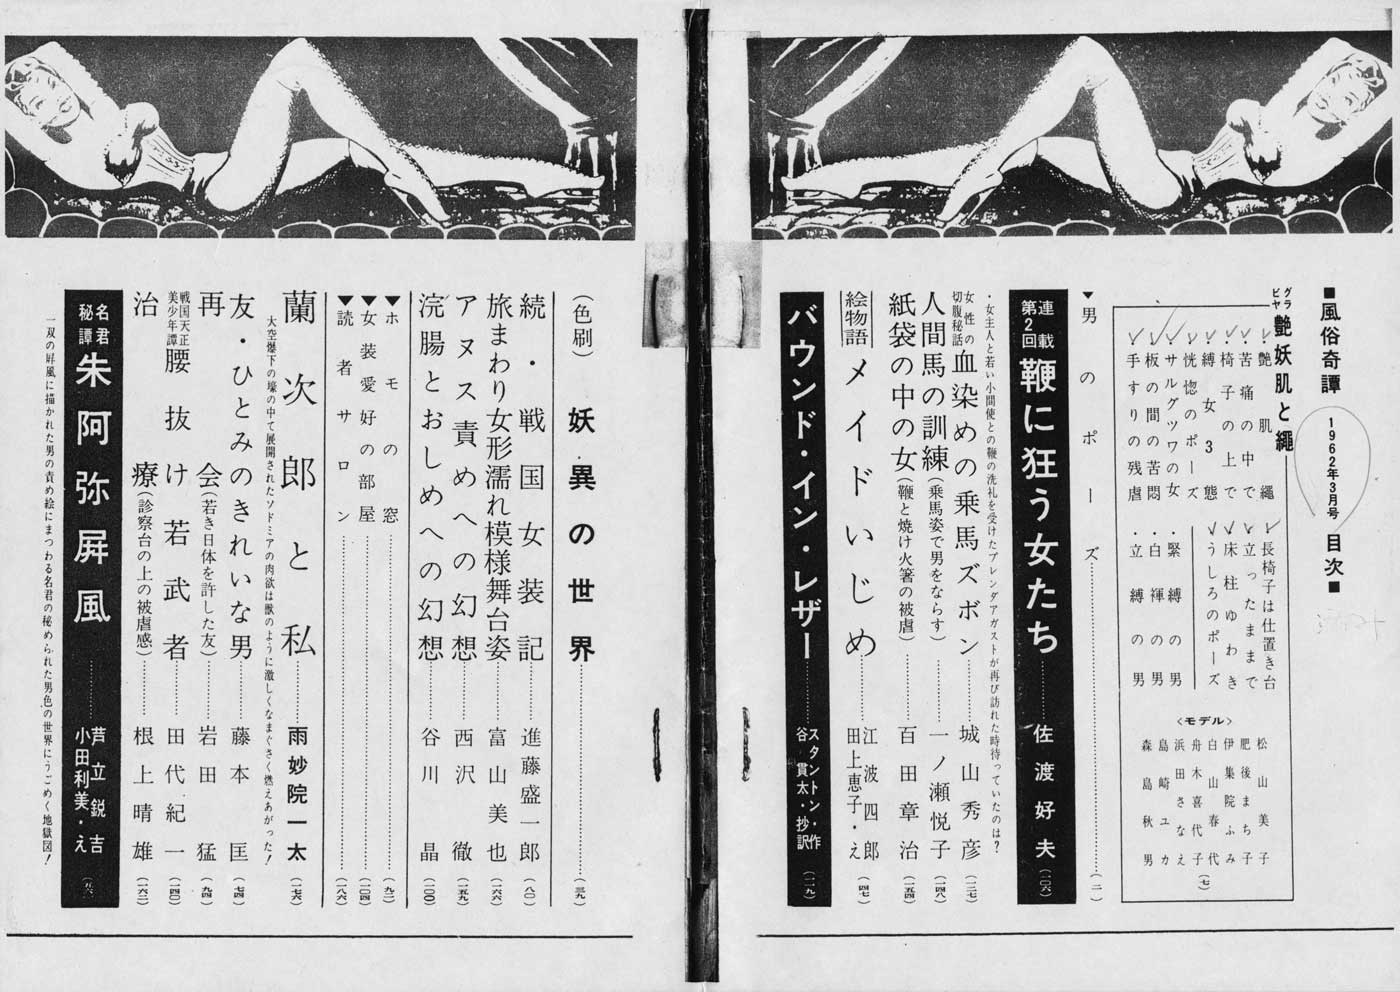 ■風俗奇譚 1962年3月号 目次■
グラビヤ 艶妖肌と縄
・艶肌縄
・苦痛の中で
・椅子の上で
・縛女3態
・恍惚のポーズ
・サルグツワの女
・板の間の苦悶
・手すりの残虐
・長椅子は仕置き台
・立ったままで
・床柱ゆわき
・うしろのポーズ
・緊縛の男
・白褌の男
・立縛の男
〈モデル〉
松山美子
肥後まち子
伊集院ふみ
白山春代
舟木喜代子
浜田さなえ
島崎ユカ
森島秋男
(七)
▼男のポーズ……(一)
連載第2回 鞭に狂う女たち……佐渡好夫(二〇六)
・女主人と若い小間使との鞭の洗礼を受けたブレンダアガストが再び訪れた時待っていたのは?
女性の切腹秘話 血染めの乗馬ズボン……城山秀彦(一三七)
人間馬の訓練(乗馬姿で男をならす)……一ノ瀬悦子(一四八)
紙袋の中の女(鞭と焼け火箸の被虐)……百田章治(一五四)
絵物語 メイドいじめ……江波四郎 田上恵子・え(四七)
バウンド・イン・レザー……スタントン・作 谷貫太・抄訳(一一九)
(色刷)妖異の世界……(三九)
続・戦国女装記……進藤盛一郎(八〇)
旅まわり女形濡れ模様舞台姿……富山美也(一六六)
アヌス責めへの幻想……西沢徹(一五九)
浣腸とおしめへの幻想……谷川晶(一〇〇)
▼ホモの窓……(九二)
▼女装愛好の部屋……(一〇四)
▼読者サロン……(一八六)
蘭次郎と私……雨妙院一太(一七六)
大空爆下の壕の中て展開されたソドミアの肉欲は獣のように激しくなまぐさく燃えあがった!
友・ひとみのきれいな男……藤本匡(七四)
再会(若き日体を許した友)……岩田猛(九四)
戦国天正美少年譚 腰抜け若武者……田代紀一(一四〇)
治療(診察台の上の被虐感)……根上晴雄(一六二)
名君秘譚 朱阿弥屏風……芦立鋭吉 小田利美・え(五六)
一双の屏風に描かれた男の責め絵にまつわる名君の秘められた男色の世界にうごめく地獄図!